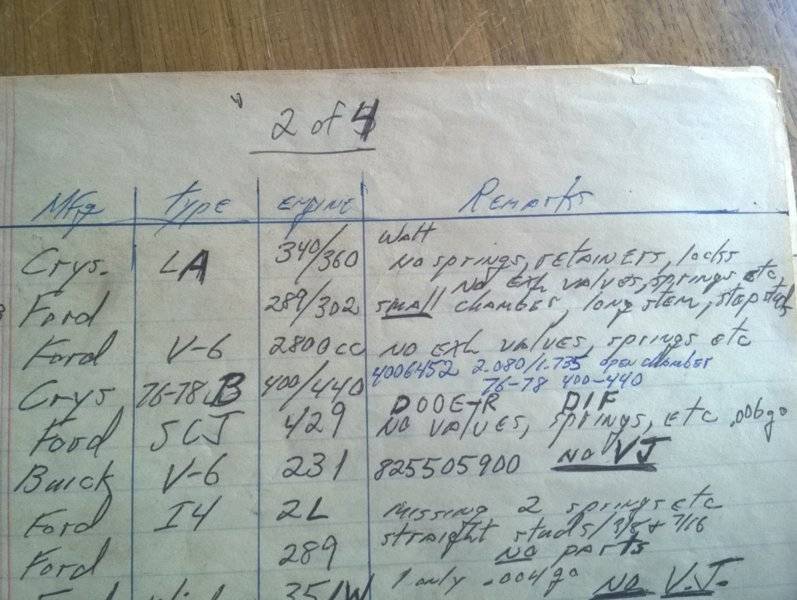 2 of 4
Mfg Type Engine Remarks
Watt
Crys. LA 340/360 No springs, retainers, locks
No Exh values, springs etc,
Ford 289/302 small chamber, long stem, step
Ford V-6 2800cc No Exh values, springs etc
4006452 2.080/1.735 open chamber
Crys 76-78 B 400/440 76-78 400-440
DOOE-R DIF
Ford SCJ 429 No values, springs, etc .006 go
Buick V-6 231 825505900 No VJ
Ford I4 2L Missing 2 springs etc
straight studs/3/8 + 7/16
Ford 289 No parts
1 only .004 go No V.J.
351W